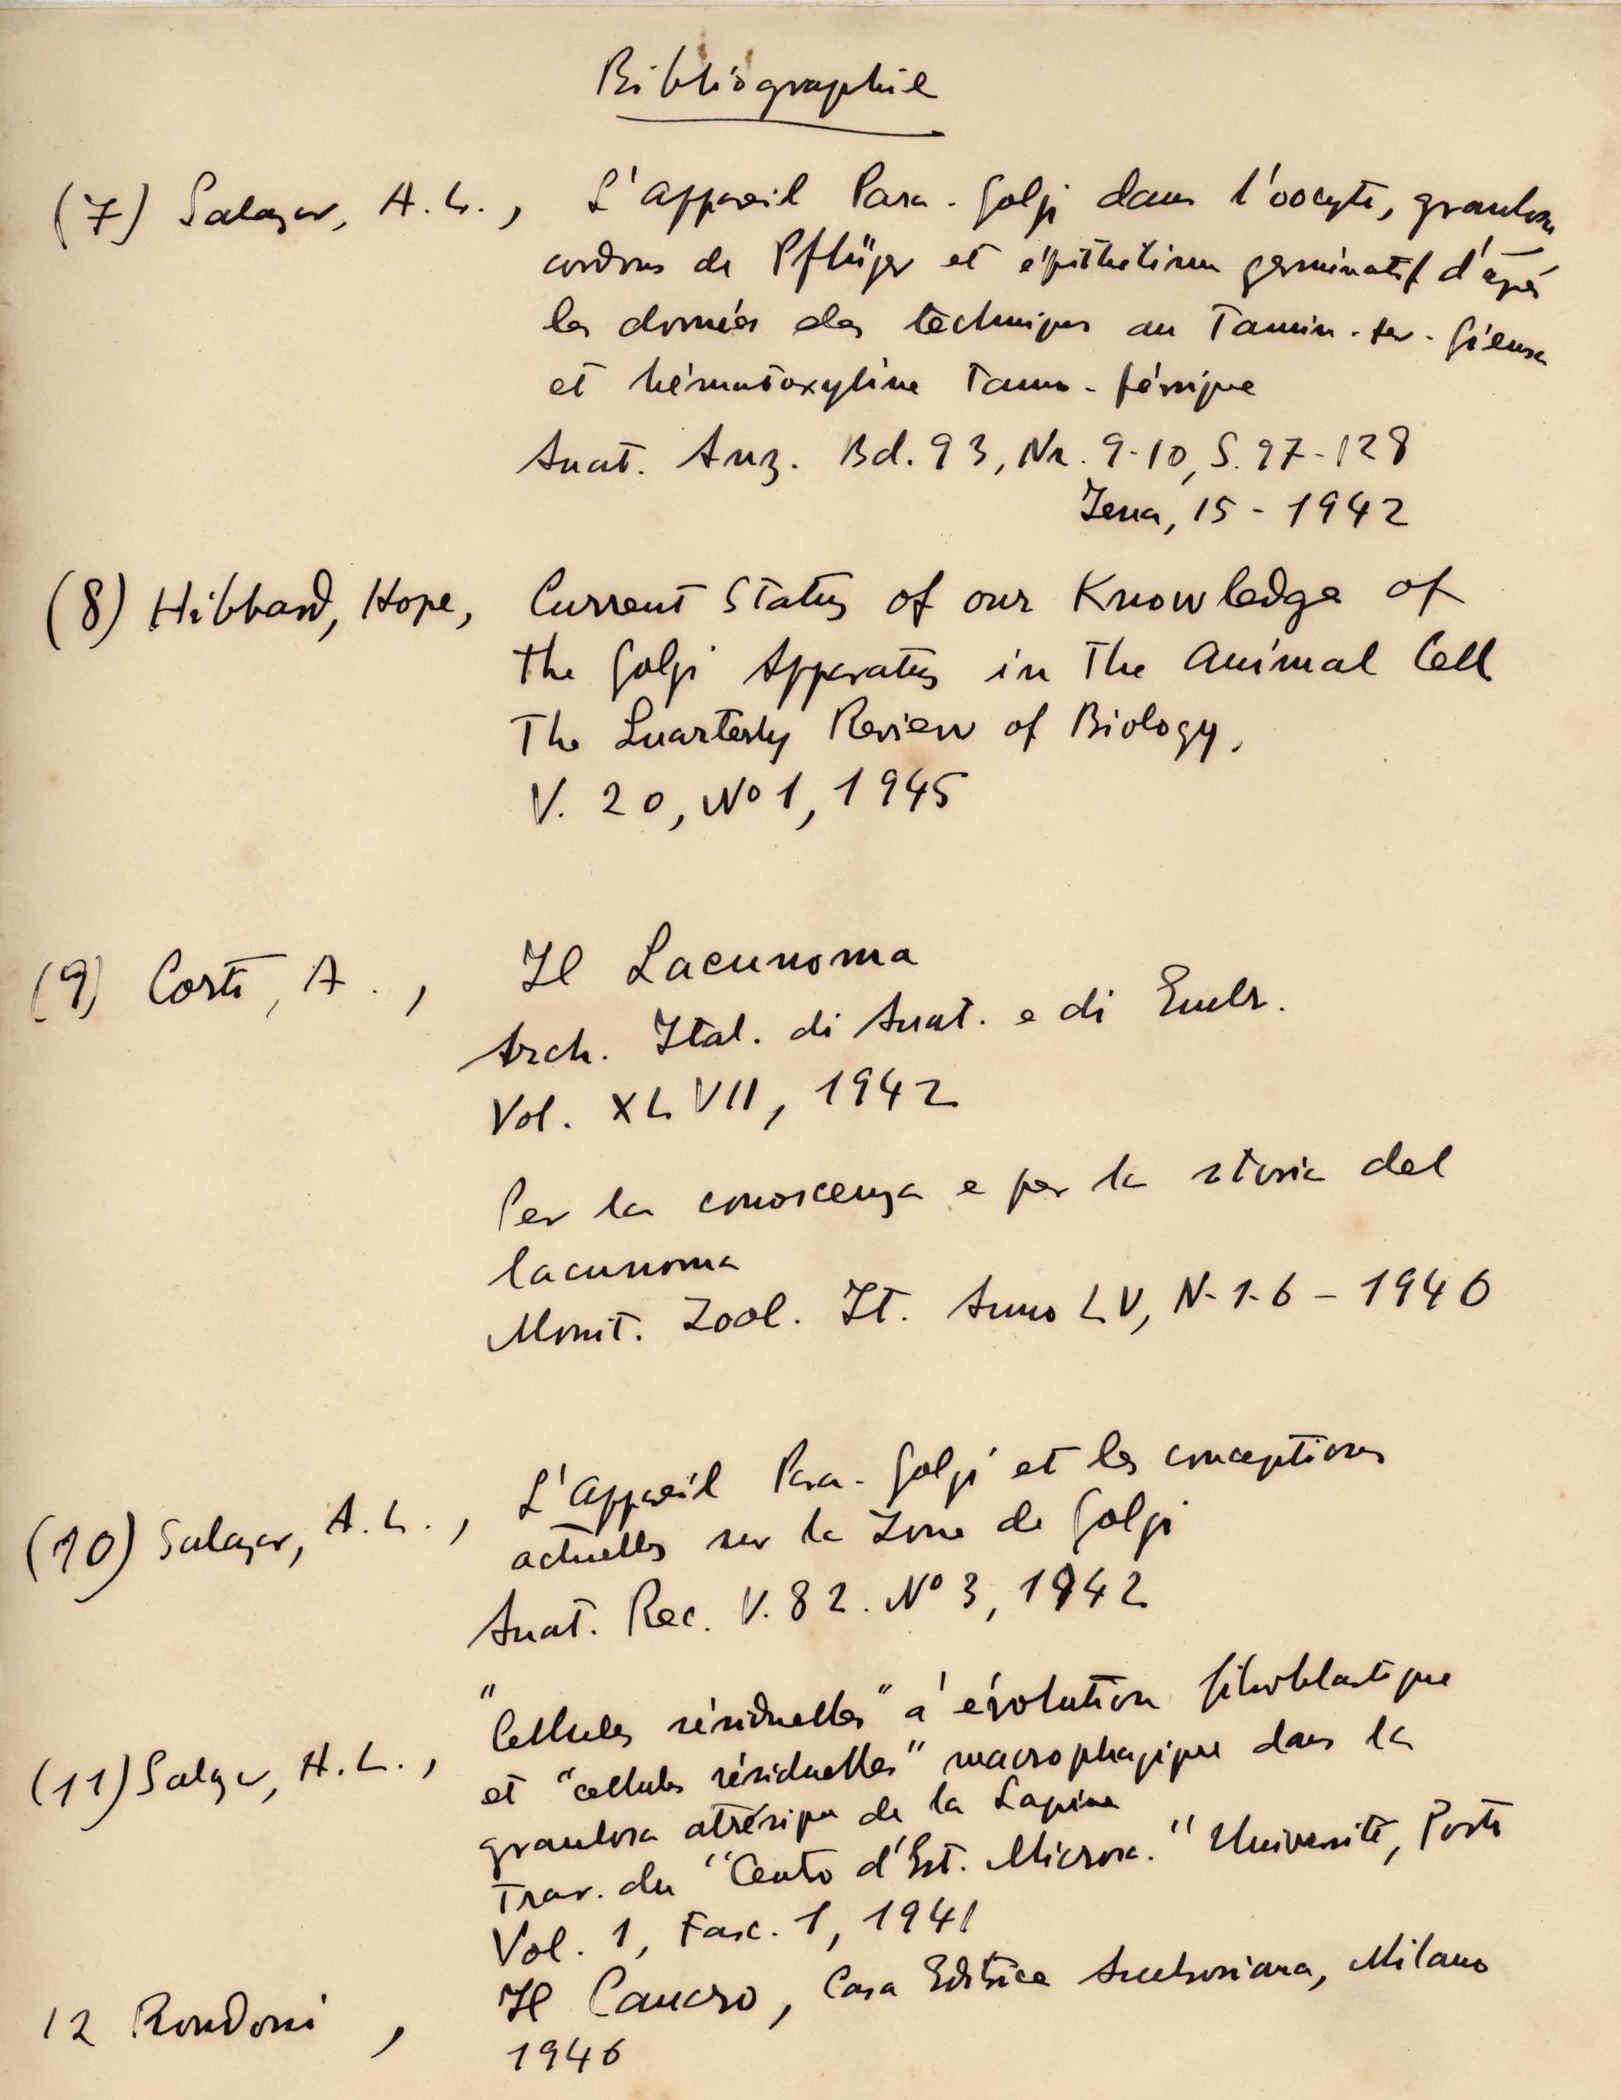 Bibliographie
(7) Salazar, A. L., L'appareil Para-Golgi dans l'oocyte, granulosa
cordons de Pflüger et épithelium germinatif d'après
les donnés des techniques au Tannin-fer-Giemsa
et hématoxyline tanno-férrique
Anat. Anz. Bd. 93, Nr. 9-10, S. 97-128
Jena, 15 - 1942
(8) Hibbard, Hope, Current Status of our Knowledge of
the Golgi Apparatus in the Animal Cell
The Quarterly Review of Biology,
V. 20, No 1, 1945
(9) Corti, A., Il Lacunoma
Arch. Ital. di Anat. e di Embr.
Vol. XLVII, 1942
Per la conoscenza e per la storia del
lacunoma
Monit. Zool. It. Anno LV, N-1-6 - 1946
(10) Salazar, A. L., L'appareil Para-Golgi et les conceptions
actuelles sur la Zone de Golgi
Anat. Rec. V. 82. No 3, 1942
(11) Salazar, A. L., "Cellules résiduelles" á évolution fibroblastique
et "cellules résiduelles" macrophagique dans la
granulosa atrésique de la Lapine
Trav. du "Centro d'Est. Microsc." Université, Porto
Vol. 1, Fasc. 1, 1941
12 Rondoni, Il Cancro, Casa Editrice Ambrosiana, Milano
1946